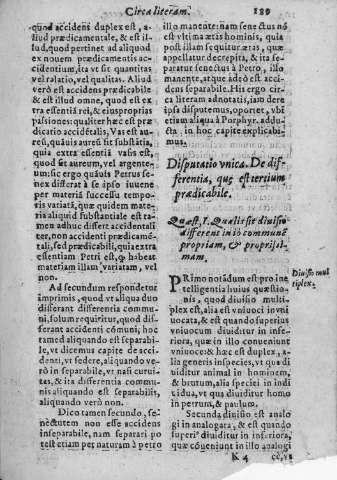 Circa literam. 189
quod accidens duplex est, a-
liud prædicamentale, & est il-
lud, quod pertinet ad aliquod
ex nouem prædicamentis ac-
cidentium, ita vt sit quantitas
vel ratio, vel qualitas. Aliud
verò est accidens prædicabile
& est illud omne, quod est ex
tra essentiã rei, & eius proprias
passiones: qualiter hæc est præ
dicatio accidẽtalis, Vas est au-
reũ, quãuis aureũ sit substãtia,
quia extra essentiã vasis est,
quod sit aureum, vel argente-
um: sic ergo quãuis Petrus se-
nex differat à se ipso iuuene
per materiã successu tempo-
ris variatã, quæ quidem mate-
ria aliquid substantiale est ta-
men adhuc differt accidentali
ter, non accidẽti prædicamẽ-
tali, sed prædicabili, quia extra
essentiam Petri est, habeat
materiam illam variatam, vel
non.
Ad secundum respondetur
imprimis, quod vt aliqua duo
differant differentia commu-
ni, solum requiritur, quod dif-
ferant accidenti cõmuni, hoc
tamed aliquando est separabi-
le, vt dicemus capite de acci-
denti, vt sedere, aliquando ve-
rò in separabile, vt nasi curui-
tas, & ita differentia commu-
nis aliquando est separabilis,
aliquando verò non.
Dico tamen secundo, se-
nectutem non esse accidens
inseparabile, nam separari po
test etiam per naturam à petro
illo manente: nam senectus nõ
est vltima ætatis hominis, quia
post illam sequitur ætas, quæ
appellatur decrepita, & ita se-
paratur senectus à Petro, illo
manente, atque adeò est acci-
dens separabile. His ergo cir-
ca literam adnotatis, iam dere
ipsa disputemus, oportet, vbi
etiam aliqua à Porphyr. addu-
cta, in hoc capite explicabi-
mus.
Disputatio vnica. De dif-
ferentia, quę est tertium
prædicabile.
Quæst. I. Qualis sit diuisio
different in in communẽ
propriam, & proprijssi-
mam.
PRimo notãdum est pro in-
telligentia huius quæstio-
nis, quod diuisio multi-
plex est, alia est vniuoci in vni
uocata, & est quando superius
vniuocum diuiditur in infe-
riora, quæ in illo conueniunt
vniuoce & hæc est duplex, a-
lia generis in species, vt quã di
uiditur animal in hominem,
& brutum, alia speciei in indi
uidua, vt qua diuiditur homo
in petrum, & paulum.
Secunda diuisio est analo
gi in analogata, & est quando
superiꝰ diuiditur in inferiora,
quæ cõueniunt in illo analogi
Diuisio mul
tiplex.
K 4